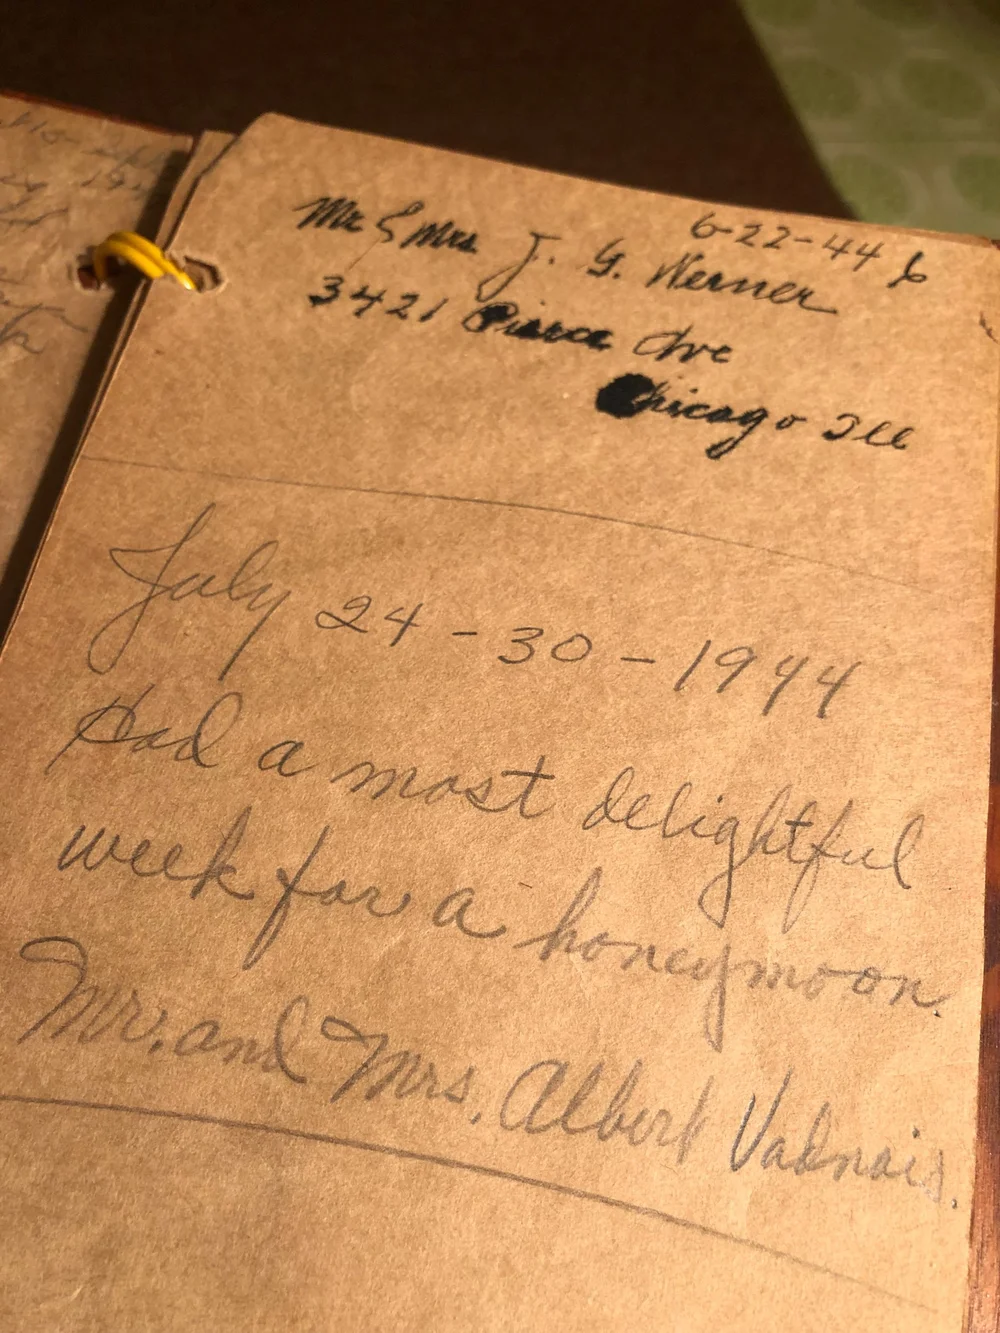 6-22-44
Mr & Mrs J. G. Werner
3421 Pierce Ave
Chicago Ill
July 24 - 30 - 1944
Had a most delightful
week for a honeymoon.
Mr. and Mrs. Albert Vadnais.